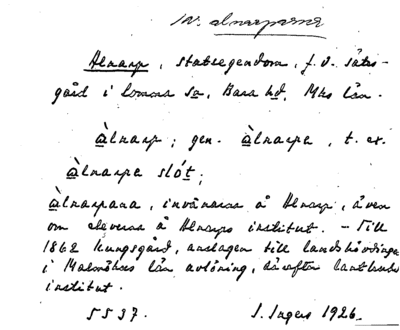 iv. alnarparna
Alnarp, statsegendom, f. d. säteri-
gård i Lomma sn, Bara hd, Mhs län.
àlnarp; gen. àlnarpa, t. ex.
àlnarpa slót;
àlnarpana, invånarna å Alnarp, även
om eleverna å Alnarps institut. – Till
1862 kungsgård, anslagen till landshövdingen
i Malmöhus län avlöning, därefter lantbruks
institut.
5537. S. Ingers 1926.